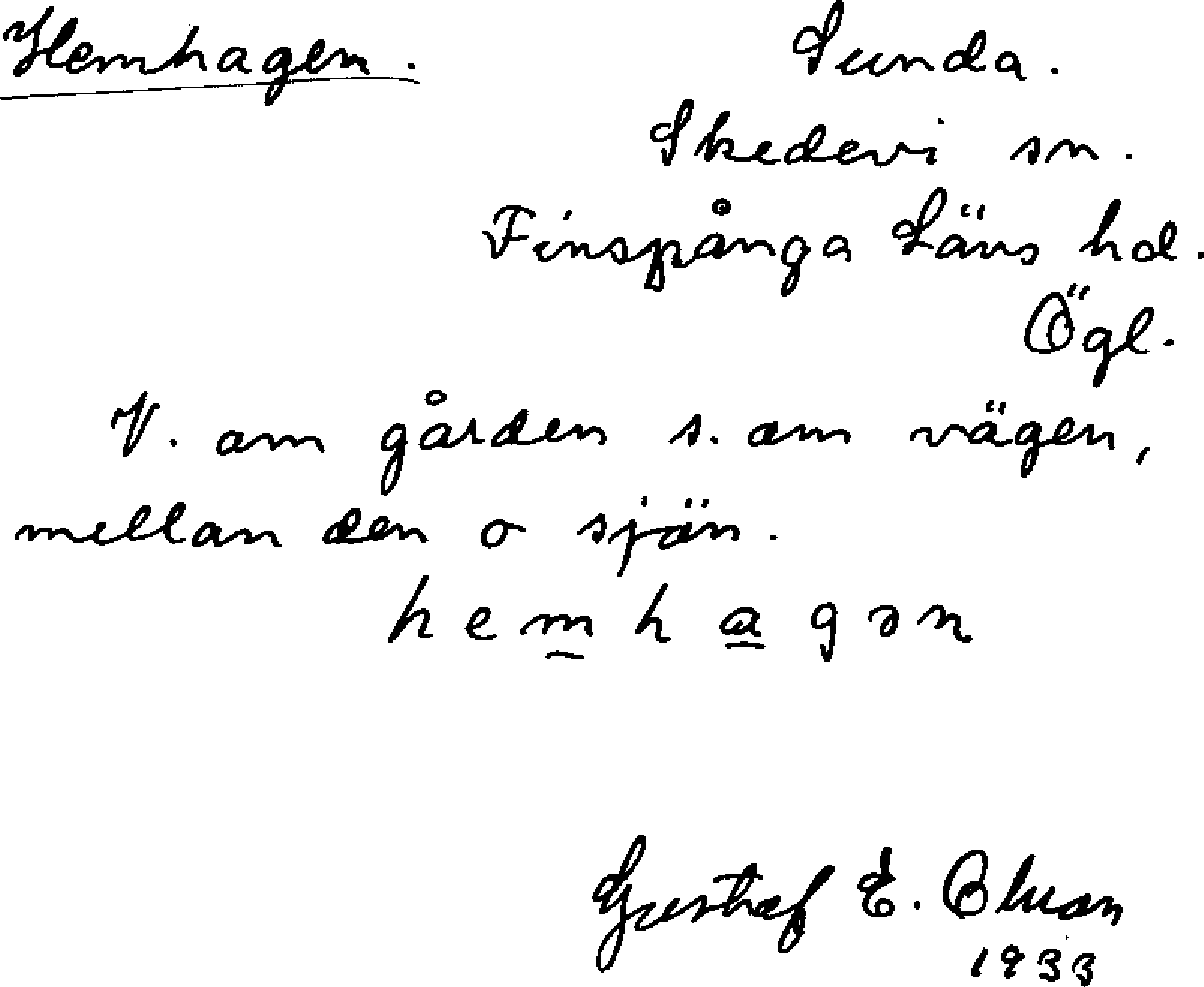 Hemhagen. Sunda.
Skedevi sn.
Finspånga Läns hd.
Ögl.
V. om gården s. om vägen,
mellan den o sjön.
hemhagən
Gustaf E.
1933